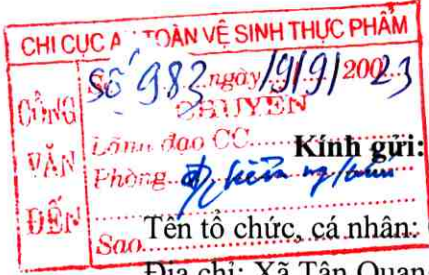 CHI CỤC A TOÀN VỆ SINH THỰC PHẨM
CÔNG VĂN ĐẾN
Số 983 ngày 19/9/2023
CHUYỂN
Lãnh đạo CC
Phòng
Sao
Kính gửi:
Tên tổ chức, cá nhân:
Địa chỉ: Xã Tân Quan